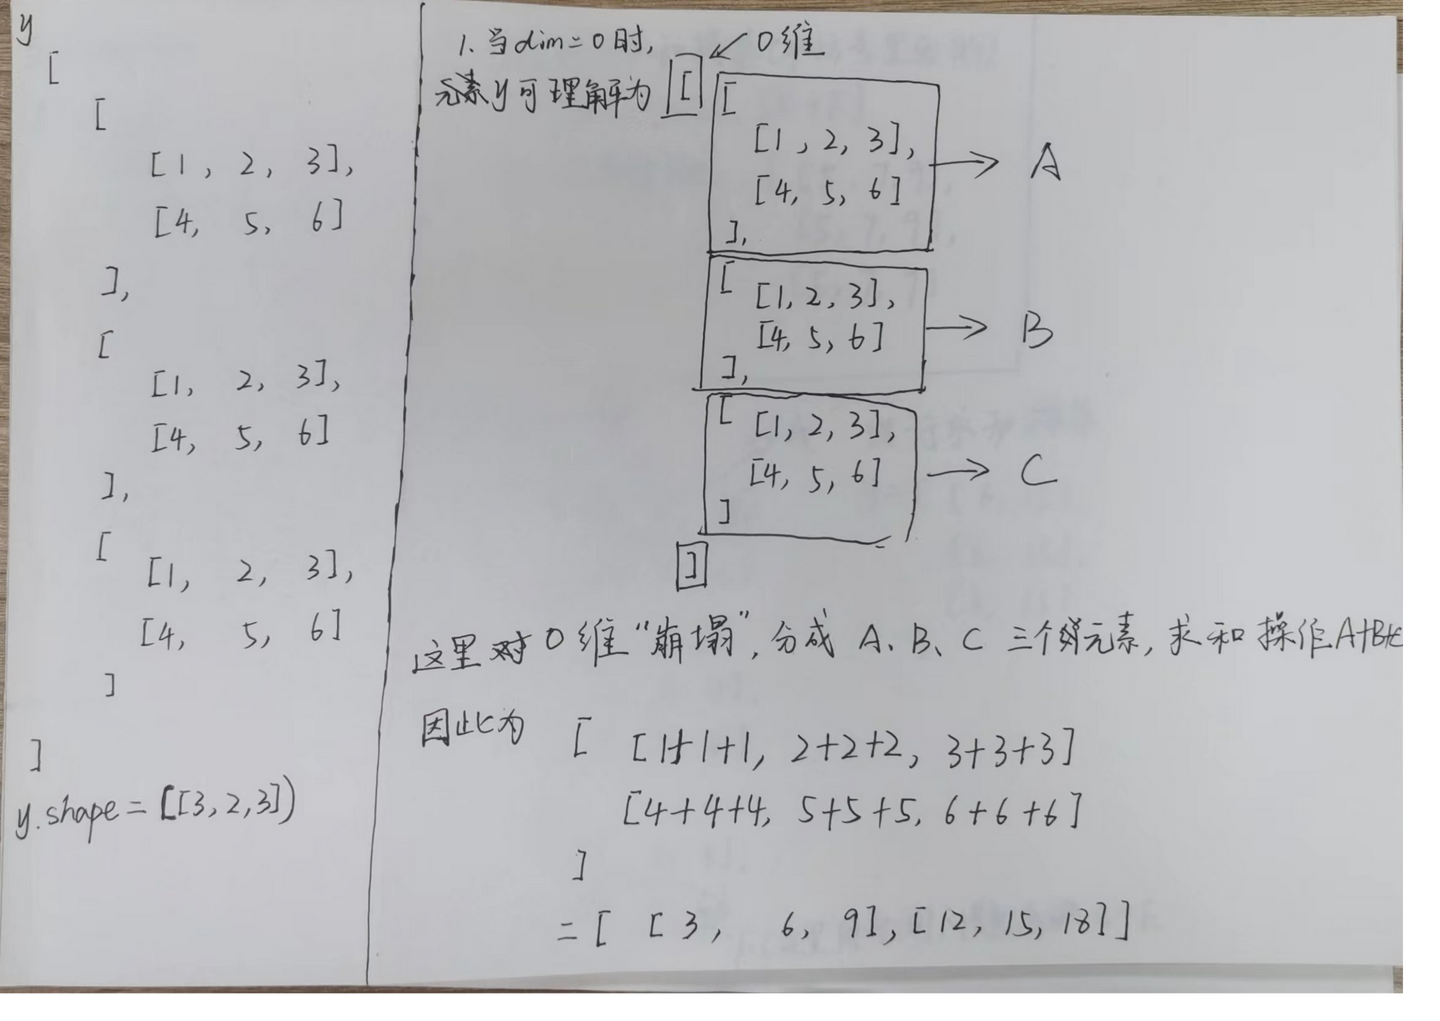 y
[
[
[1, 2, 3],
[4, 5, 6]
],
[
[1, 2, 3],
[4, 5, 6]
],
[
[1, 2, 3],
[4, 5, 6]
]
]
y.shape = ([3,2,3])
1. 当dim=0时,
0维
元素y可理解为 [
[
[1, 2, 3],
[4, 5, 6]
],
A
[
[1, 2, 3],
[4, 5, 6]
],
B
[
[1, 2, 3],
[4, 5, 6]
]
C
]
这里对0维“崩塌”,分成 A、B、C 三个元素, 求和操作A+B+C
因此为 [ [1+1+1, 2+2+2, 3+3+3]
[4+4+4, 5+5+5, 6+6+6]
]
= [ [3, 6, 9], [12, 15, 18]]